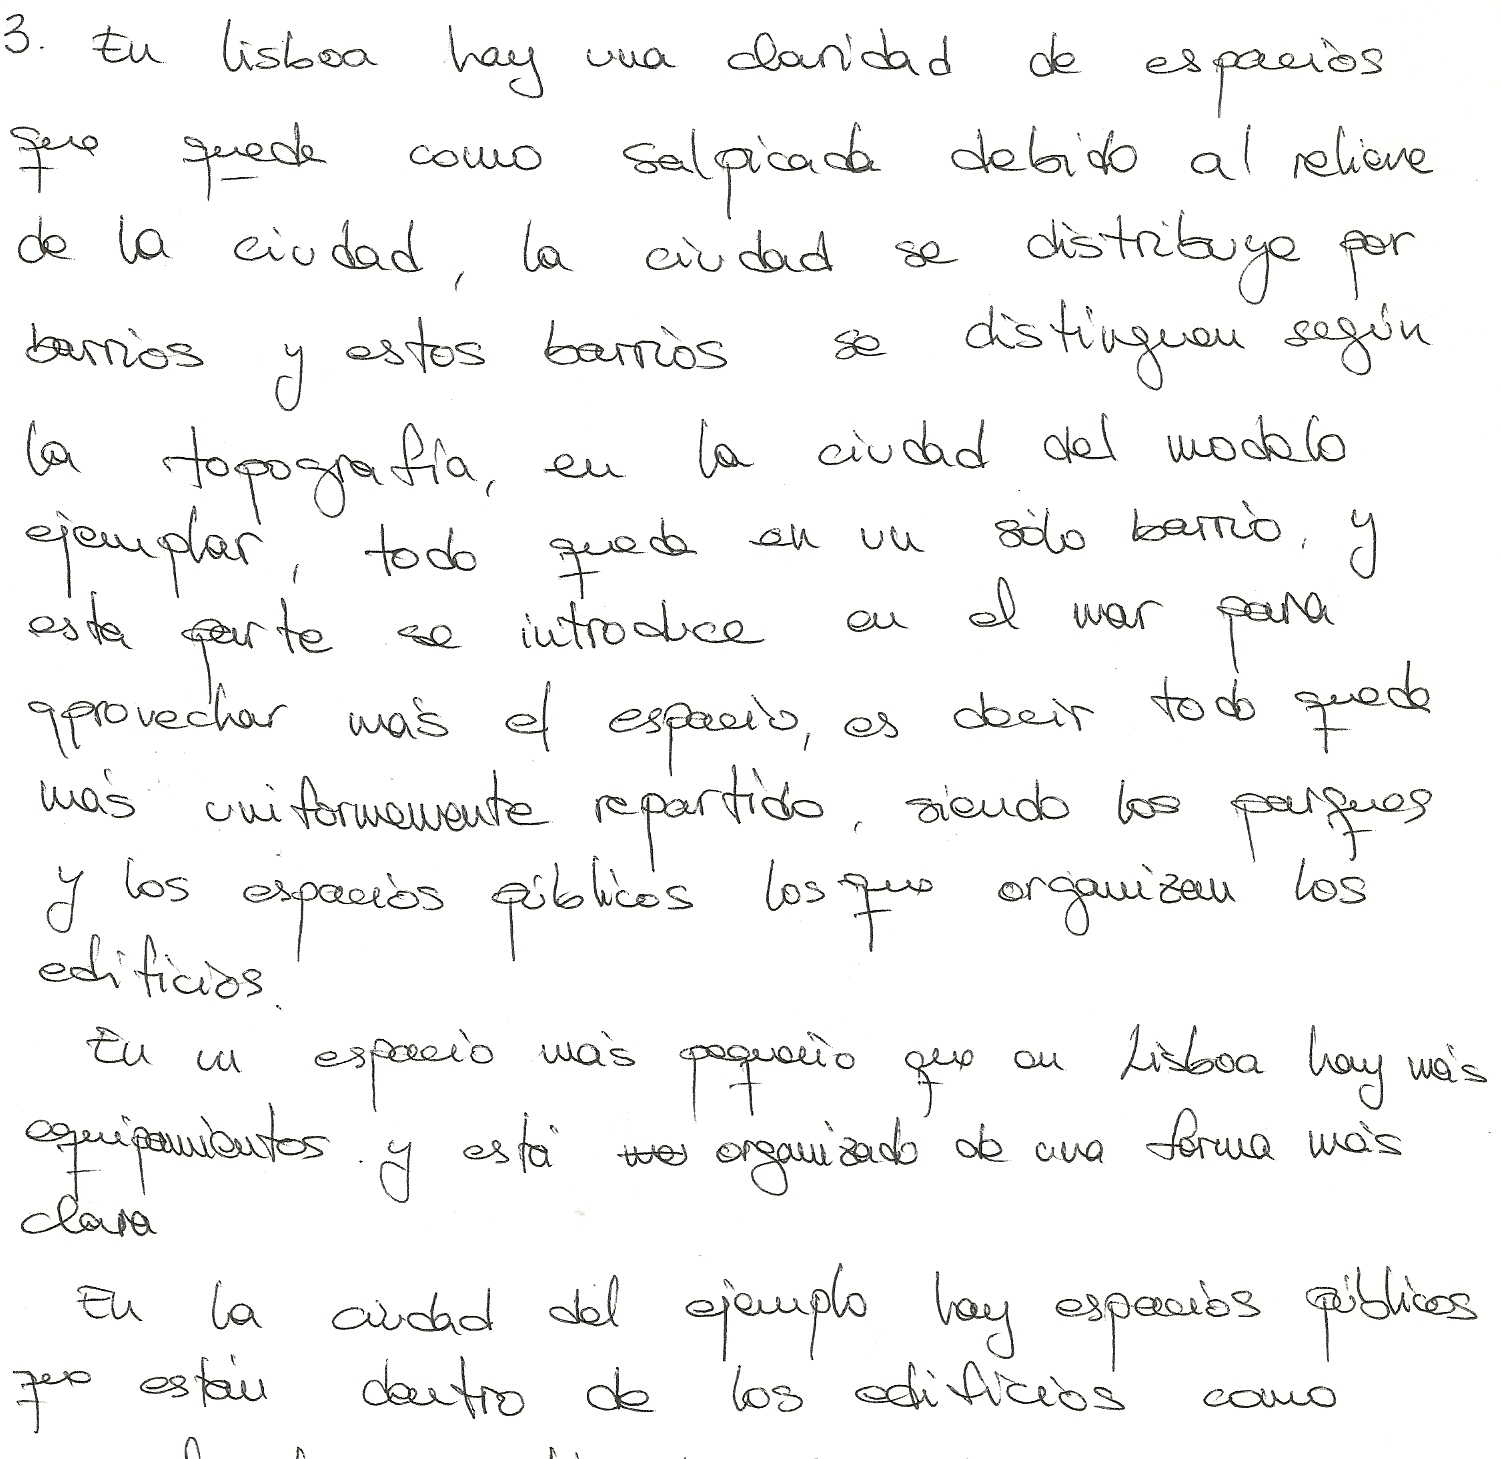 3. En lisboa hay una claridad de espacios
que quede como salpicada debido al relieve
de la ciudad, la ciudad se distribuye por
barrios y estos barrios se distinguen según
la topografía, en la ciudad del modelo
ejemplar, todo queda en un sólo barrio, y
esta parte se introduce en el mar para
aprovechar más el espacio, es decir todo queda
más uniformemente repartido, siendo los parques
y los espacios públicos los que organizan los
edificios.
En un espacio más pequeño que en Lisboa hay más
equipamientos y está organizado de una forma más
clara
En la ciudad del ejemplo hay espacios públicos
que están dentro de los edificios como